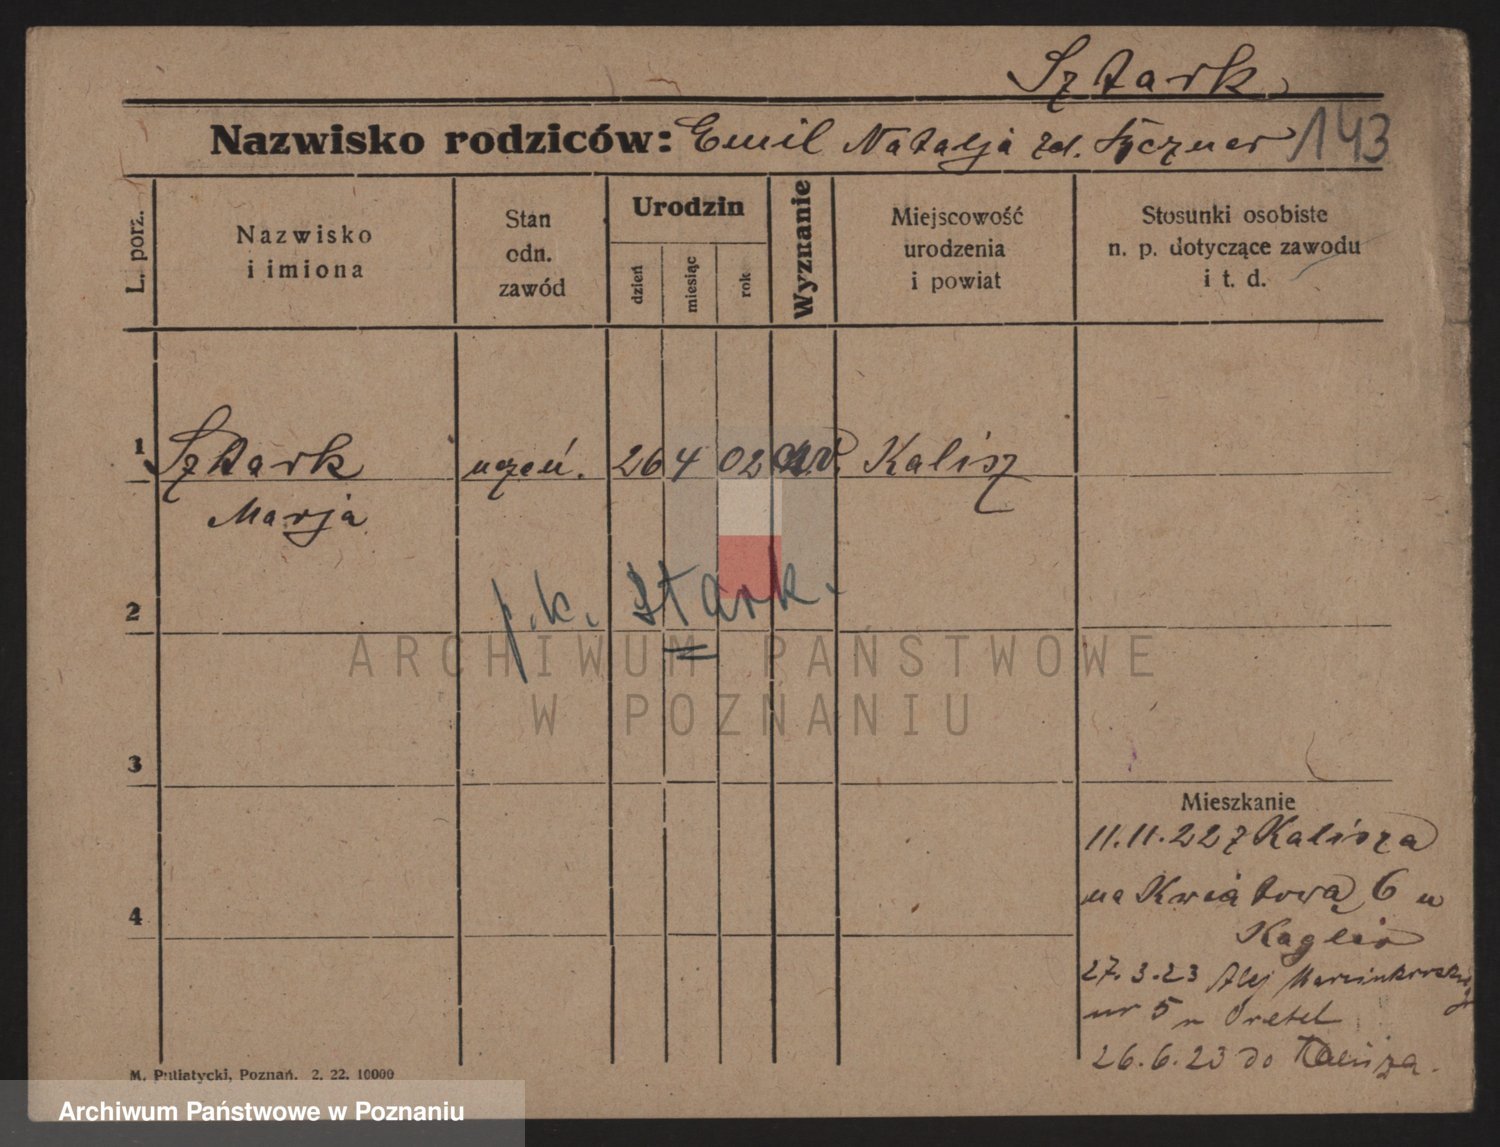 Sztark
Nazwisko rodziców: Emil Natalja zd. 143
L. porz.
Nazwisko
i imiona
Stan
odn.
zawód
Urodzin
dzień
miesiąc
rok
Wyznanie
Miejscowość
urodzenia
i powiat
Stosunki osobiste
n. p. dotyczące zawodu
i t. d.
1 Sztark uczeń. 26 4 02 Kalisz
Marja
p.k. Stark.
2
ARCHIWUM PAŃSTWOWE
W POZNANIU
3
Mieszkanie
11.11.22 z Kalisza
na Kwiatową 6 u
4
27.3.23 Alej Marcinkowskiego
nr 5 u
26.6.23 do Kalisza.
M. Putiatycki, Poznań. 2. 22. 10000
Archiwum Państwowe w Poznaniu